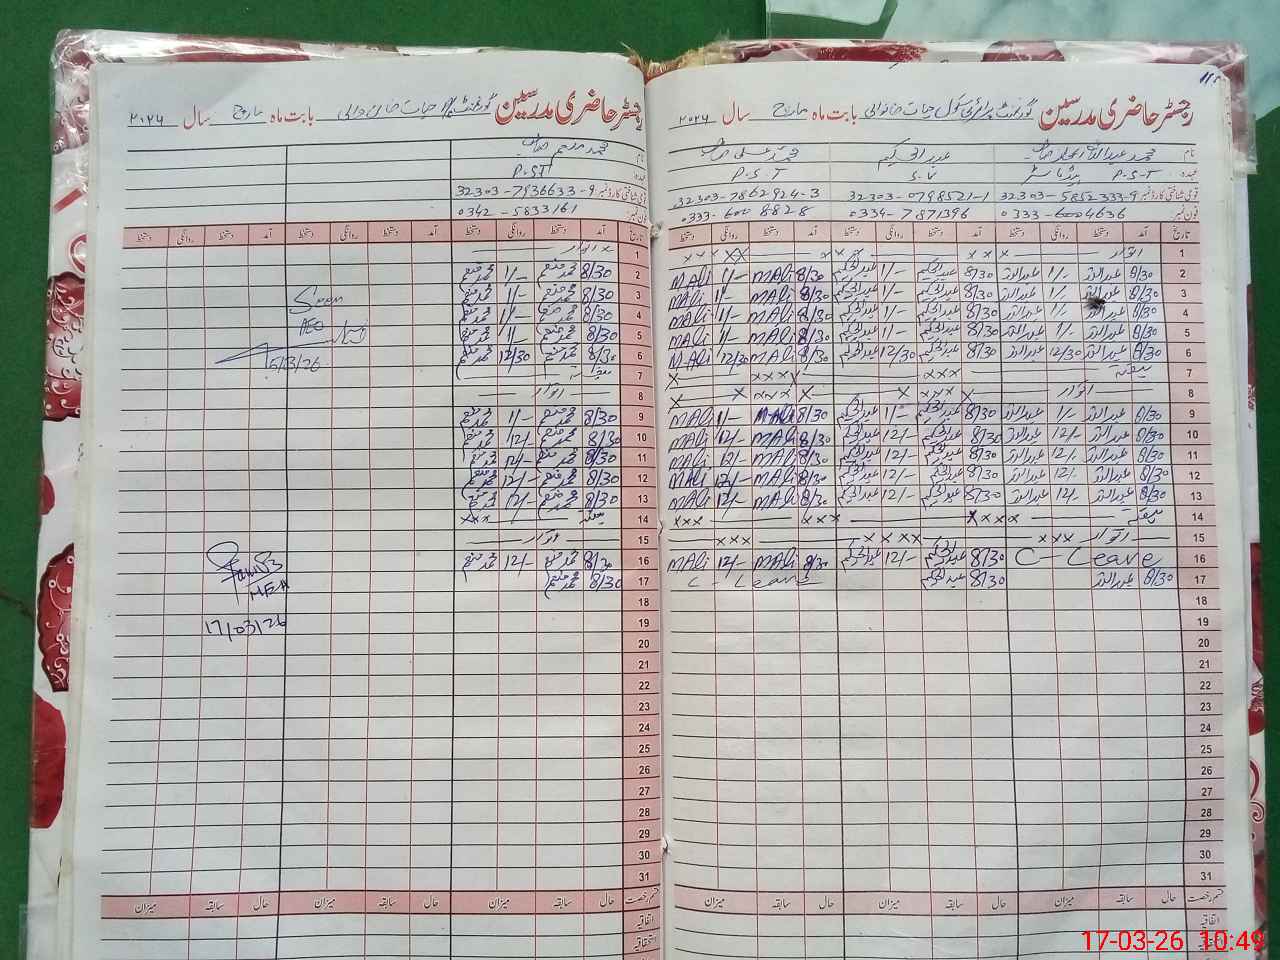 رجسٹر حاضری مدرسین گورنمنٹ پرائمری سکول حیات خانوالی بابت ماہ مارچ سال ۲۰۲۶
نام محمد عبداللہ صاحب عبدالحکیم محمد علی صاحب
عہدہ P.S.T ہیڈ ماسٹر S.V P.S.T
قومی شناختی کارڈ نمبر 32303-5852333-9 32303-0798521-1 32303-7862924-3
فون نمبر 0333-6004636 0334-7871396 0333-600 8828
تاریخ آمد دستخط روانگی دستخط آمد دستخط روانگی دستخط آمد دستخط روانگی دستخط
1 اتوار xxx xxx xxx xx
2 8/30 عبداللہ 1/- عبداللہ 8/30 عبدالحکیم 1/- عبدالحکیم 8/30 MAli 1/- MAli
3 8/30 عبداللہ 1/- عبداللہ 8/30 عبدالحکیم 1/- عبدالحکیم 8/30 MAli 1/- MAli
4 8/30 عبداللہ 1/- عبداللہ 8/30 عبدالحکیم 1/- عبدالحکیم 8/30 MAli 1/- MAli
5 8/30 عبداللہ 1/- عبداللہ 8/30 عبدالحکیم 1/- عبدالحکیم 8/30 MAli 1/- MAli
6 8/30 عبداللہ 12/30 عبداللہ 8/30 عبدالحکیم 12/30 عبدالحکیم 8/30 MAli 12/30 MAli
7 ہفتہ xxx xxxx x
8 اتوار x x xxx x x
9 8/30 عبداللہ 1/- عبداللہ 8/30 عبدالحکیم 1/- عبدالحکیم 8/30 MAli 1/- MAli
10 8/30 عبداللہ 12/- عبداللہ 8/30 عبدالحکیم 12/- عبدالحکیم 8/30 MAli 12/- MAli
11 8/30 عبداللہ 12/- عبداللہ 8/30 عبدالحکیم 12/- عبدالحکیم 8/30 MAli 12/- MAli
12 8/30 عبداللہ 12/- عبداللہ 8/30 عبدالحکیم 12/- عبدالحکیم 8/30 MAli 12/- MAli
13 8/30 عبداللہ 12/- عبداللہ 8/30 عبدالحکیم 12/- عبدالحکیم 8/30 MAli 12/- MAli
14 ہفتہ xxxx xxx xxx
15 اتوار xxx xxxx xxx
16 C-Leave 8/30 عبدالحکیم 12/- عبدالحکیم 8/30 MAli 12/- MAli
17 8/30 عبداللہ 8/30 عبدالحکیم C-Leave
18
19
20
21
22
23
24
25
26
27
28
29
30
31
قسم رخصت حال سابقہ میزان حال سابقہ میزان حال سابقہ میزان
اتفاقیہ
استحقاقیہ
رجسٹر حاضری مدرسین گورنمنٹ پرا حیات خانوالی بابت ماہ مارچ سال ۲۰۲۶
نام محمد منعم صاحب
عہدہ P.ST
قومی شناختی کارڈ نمبر 32303-7936633-9
فون نمبر 0342-5833161
تاریخ آمد دستخط روانگی دستخط آمد دستخط روانگی دستخط آمد دستخط روانگی دستخط
1 اتوار
2 8/30 محمد منعم 1/- محمد منعم
3 8/30 محمد منعم 1/- محمد منعم
4 8/30 محمد منعم 1/- محمد منعم
5 8/30 محمد منعم 1/- محمد منعم
6 8/30 محمد منعم 12/30 محمد منعم
7 ہفتہ
8 اتوار
9 8/30 محمد منعم 1/- محمد منعم
10 8/30 محمد منعم 12/- محمد منعم
11 8/30 محمد منعم 12/- محمد منعم
12 8/30 محمد منعم 12/- محمد منعم
13 8/30 محمد منعم 12/- محمد منعم
14 ہفتہ xxx
15 اتوار
16 8/30 محمد منعم 12/- محمد منعم
17 8/30 محمد منعم
18
19
20
21
22
23
24
25
26
27
28
29
30
31
AEO
MEA
17/03/26
قسم رخصت حال سابقہ میزان حال سابقہ میزان حال سابقہ میزان
اتفاقیہ
استحقاقیہ
17-03-26 10:49